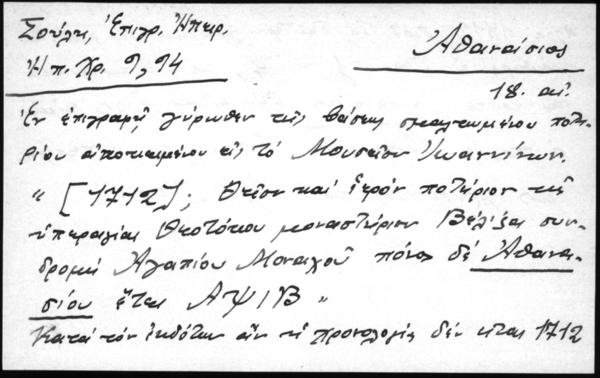 Σούλη, Ἐπιγρ. Ἠπειρ.
Ἠπ. Χρ. 9, 94
Ἀθανάσιος
18. αἰ.
Ἐν ἐπιγραφῇ γύρωθεν τῆς βάσεως σμαλτωμένου ποτη-
ρίου ἀποκειμένου εἰς τὸ Μουσεῖον Ἰωαννίνων.
" [1712]; Θεῖον καὶ ἱερὸν ποτήριον τῆς
ὑπεραγίας Θεοτόκου μοναστήριον Βελιξας συν-
δρομῇ Ἀγαπίου Μοναχοῦ πόνος δὲ Ἀθανα-
σίου ἔτει ΑΨΙΒ "
Κατὰ τὸν ἐκδότην ἂν ἡ χρονολογία δὲν εἶναι 1712